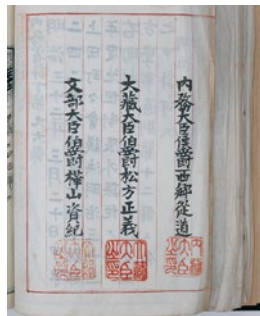 内務大臣侯爵西郷従道
大蔵大臣伯爵松方正義
文部大臣伯爵樺山資紀